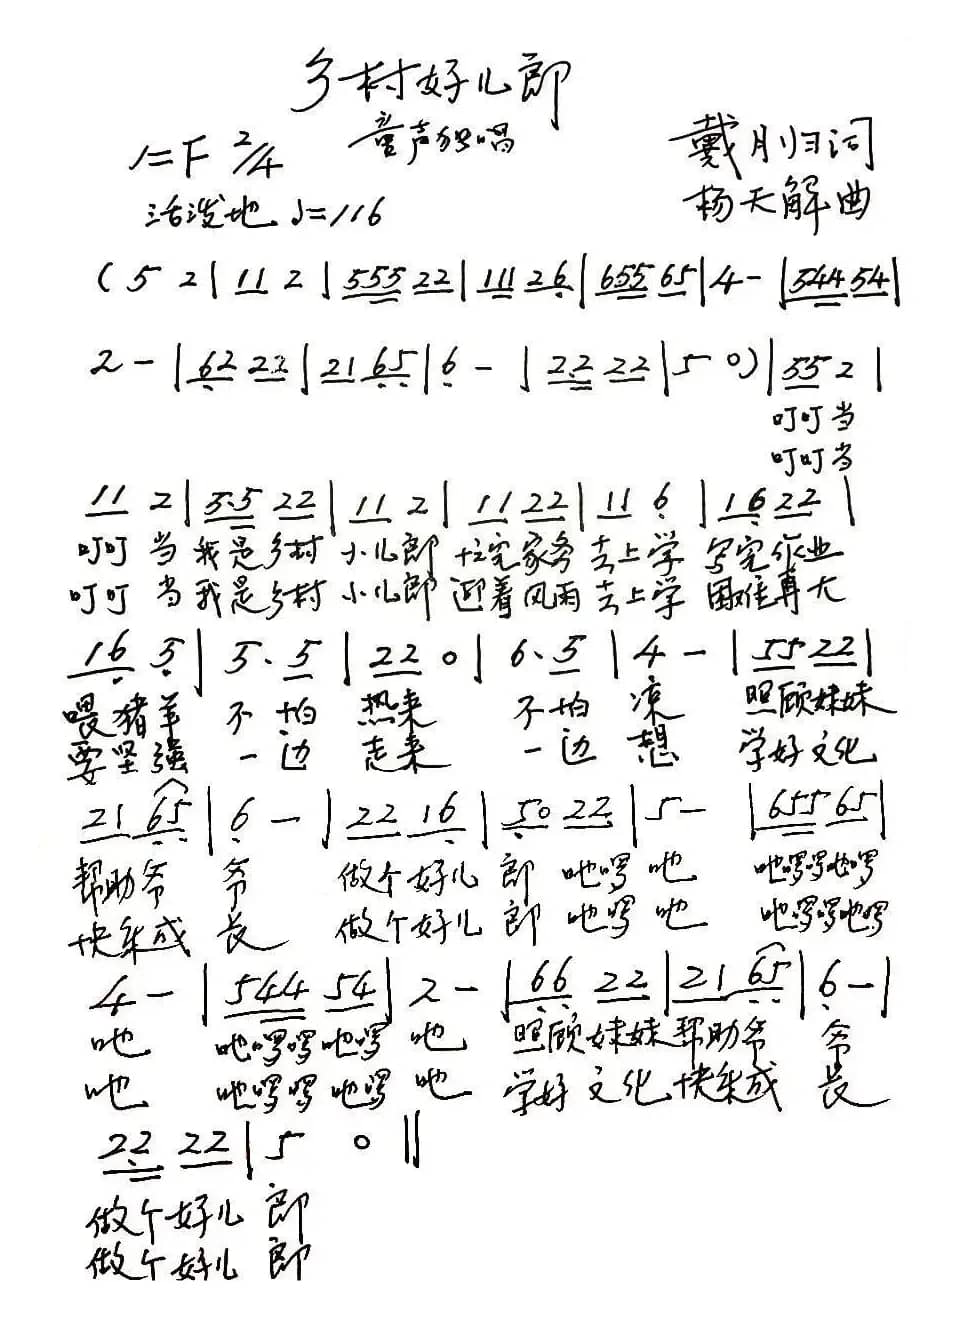 乡村好儿郎
童声独唱
1=F 2/4
戴月归词
活泼地 ♩=116
杨天解曲
( 5 2 | 11 2 | 555 22 | 111 26 | 655 65 | 4 - | 544 54 |
2 - | 62 22 | 21 65 | 6 - | 2.2 22 | 5 0) | 55 2 |
叮叮当
叮叮当
11 2 | 5.5 22 | 11 2 | 11 22 | 11 6 | 16 22 |
叮叮 当 我是乡村 小儿郎 忙完家务 去上学 写完作业
叮叮 当 我是乡村 小儿郎 迎着风雨 去上学 困难再大
16 5 | 5. 5 | 22 0 | 6. 5 | 4 - | 55 22 |
喂猪羊 不 怕 热来 不怕 凉 照顾妹妹
要坚强 一 边 走来 一边 想 学好文化
21 65 | 6 - | 22 16 | 50 22 | 5 - | 655 65 |
帮助爷 爷 做个好儿 郎 吔啰 吔 吔啰啰吔啰
快乐成 长 做个好儿 郎 吔啰 吔 吔啰啰吔啰
4 - | 544 54 | 2 - | 66 22 | 21 65 | 6 - |
吔 吔啰啰吔啰 吔 照顾妹妹 帮助爷 爷
吔 吔啰啰吔啰 吔 学好文化 快乐成 长
2.2 22 | 5 0 ‖
做个好儿 郎
做个好儿 郎